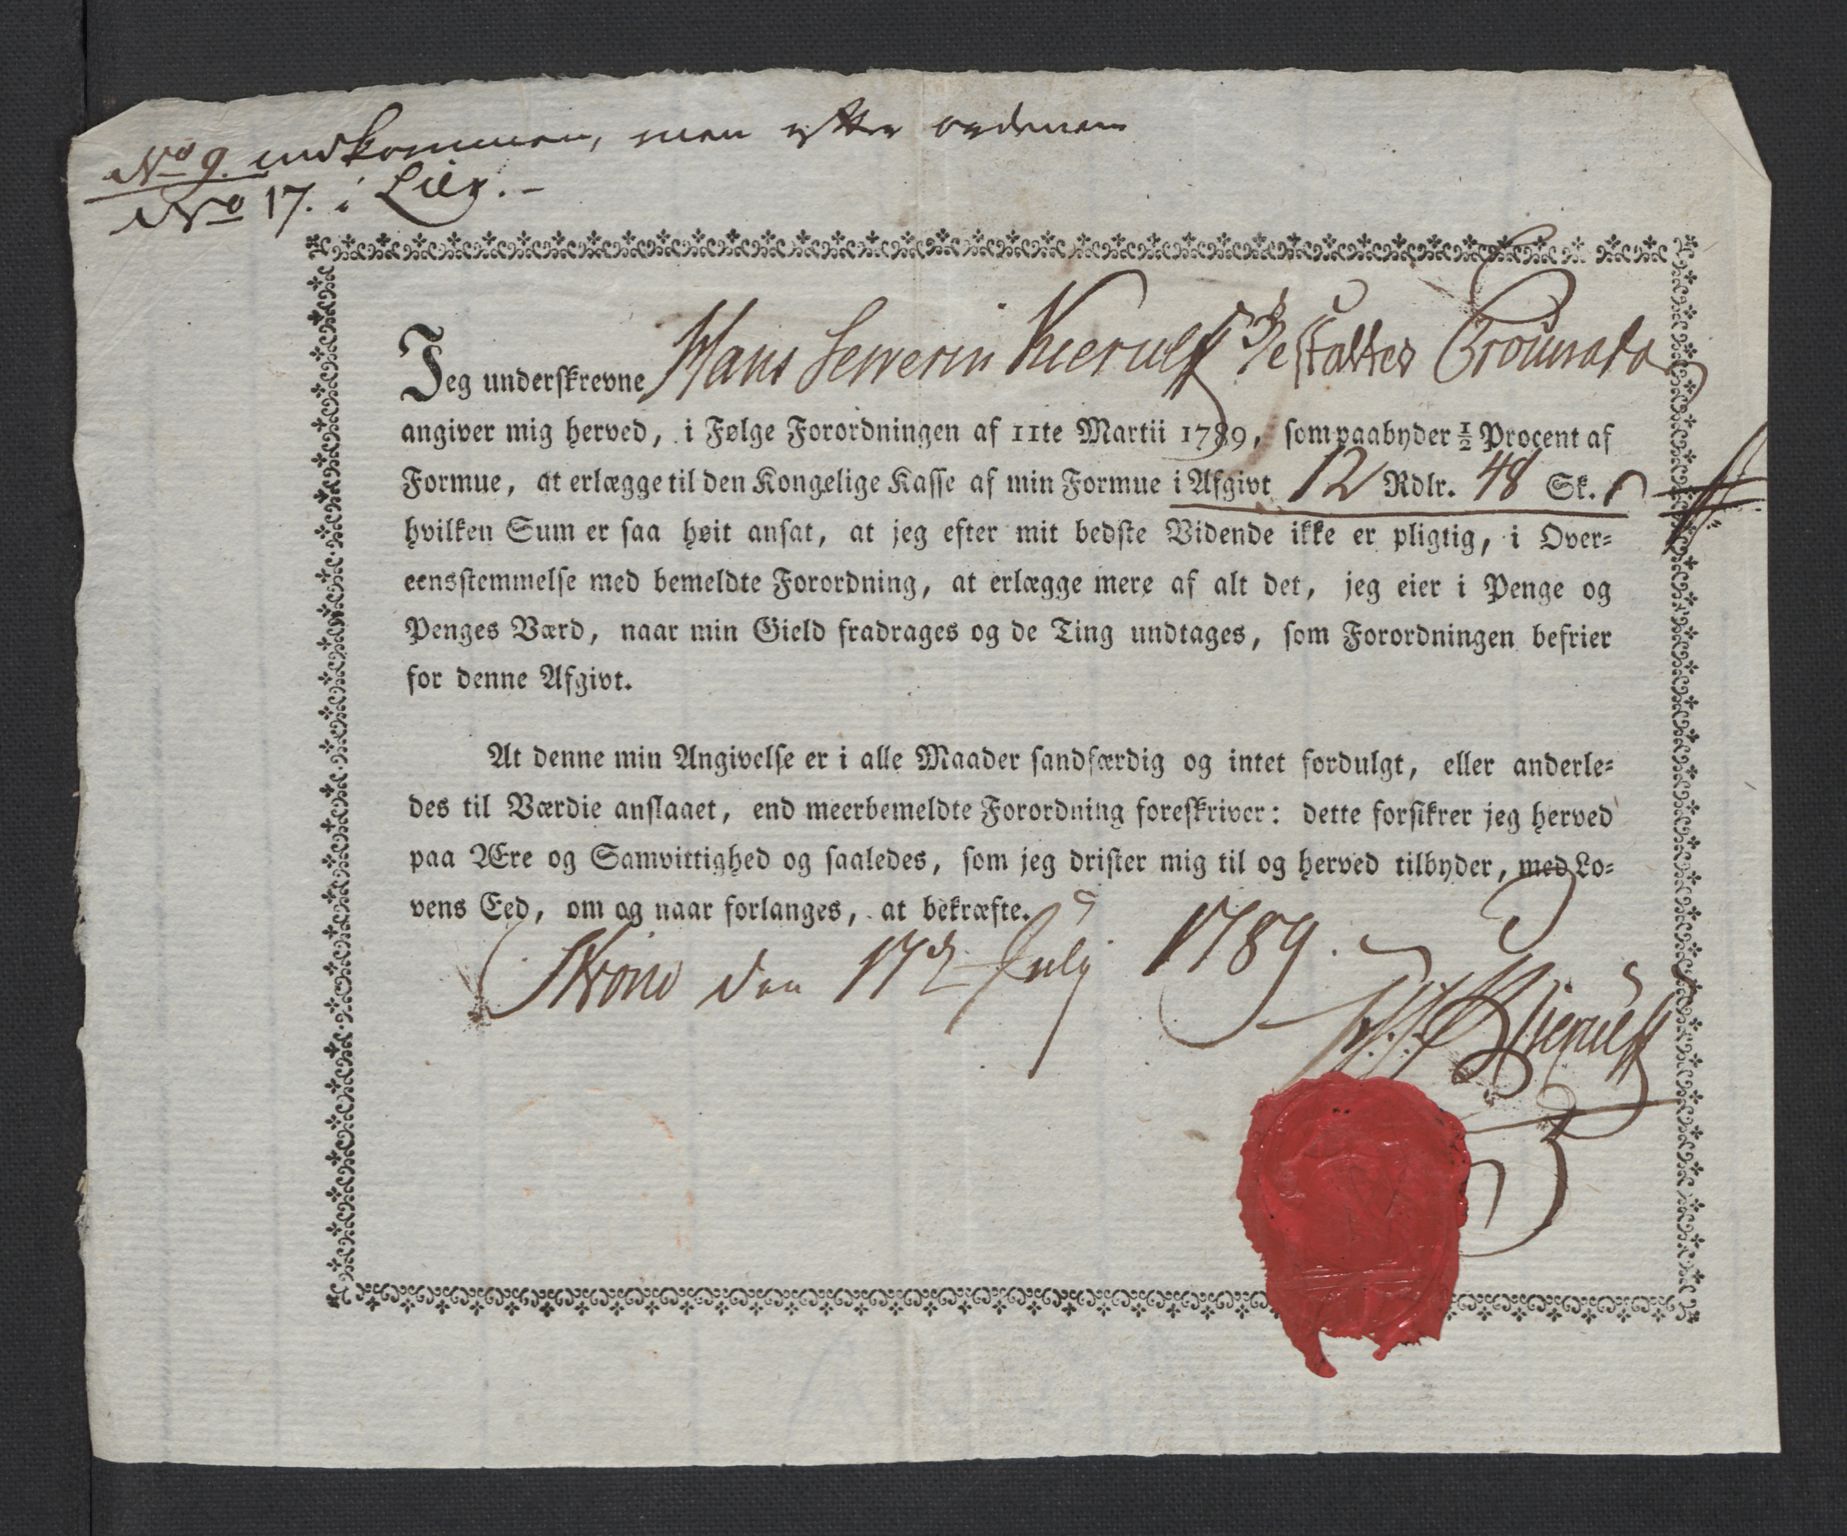 No 9. indkommen, men efter ordenen
No 17. i Lier.
Jeg underskrevne Hans Severin Kierulff
angiver mig herved, i Følge Forordningen af 11te Martii 1789, som paabyder ½ Procent af
Formue, at erlægge til den Kongelige Kasse af min Formue i Afgivt 12 Rdlr. 48 Sk.
hvilken Sum er saa høit ansat, at jeg efter mit bedste Vidende ikke er pligtig, i Over-
eensstemmelse med bemeldte Forordning, at erlægge mere af alt det, jeg eier i Penge og
Penges Værd, naar min Gield fradrages og de Ting undtages, som Forordningen befrier
for denne Afgivt.
At denne min Angivelse er i alle Maader sandfærdig og intet fordulgt, eller anderle-
des til Værdie anslaaet, end meerbemeldte Forordning foreskriver: dette forsikrer jeg herved
paa Ære og Samvittighed og saaledes, som jeg drister mig til og herved tilbyder, med Lo-
vens Eed, om og naar forlanges, at bekræfte.
den 17de July 1789.
H: S: Kierulff